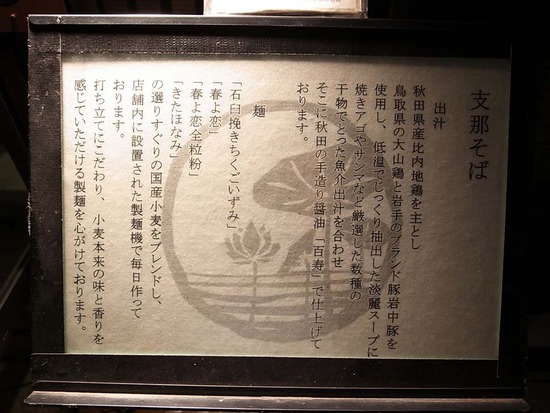 支那そば
出汁
秋田県産比内地鶏を主とし
鳥取県の大山鶏と岩手のブランド豚岩中豚を
使用し、低温でじっくり抽出した淡麗スープに
焼きアゴやサンマなど厳選した数種の
干物でとった魚介出汁を合わせ
そこに秋田の手造り醤油「百寿」で仕上げて
おります。
麺
「石臼挽きちくごいずみ」
「春よ恋」
「春よ恋全粒粉」
「きたほなみ」
の選りすぐりの国産小麦をブレンドし、
店舗内に設置された製麺機で毎日作って
おります。
打ち立てにこだわり、小麦本来の味と香りを
感じていただける製麺を心がけております。